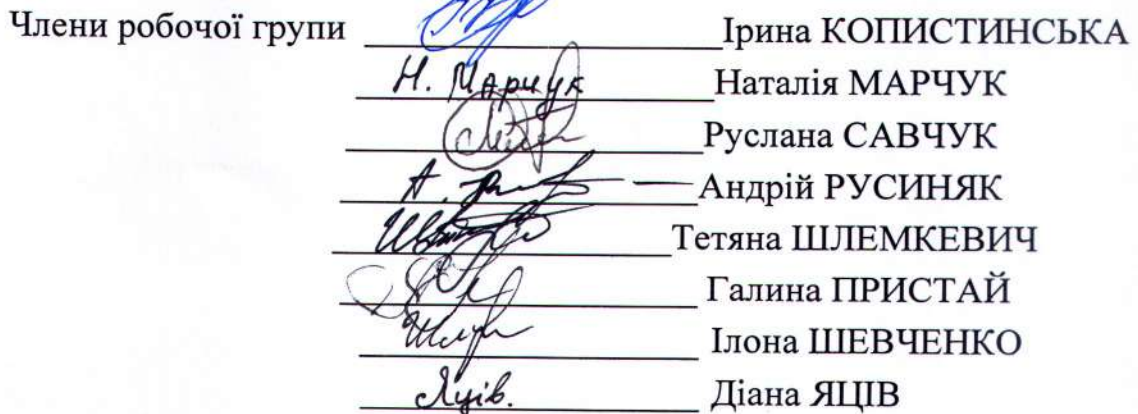 Члени робочої групи Ірина КОПИСТИНСЬКА
Н. Марчук Наталія МАРЧУК
Руслана САВЧУК
А. Андрій РУСИНЯК
Тетяна ШЛЕМКЕВИЧ
Галина ПРИСТАЙ
Ілона ШЕВЧЕНКО
Яців. Діана ЯЦІВ